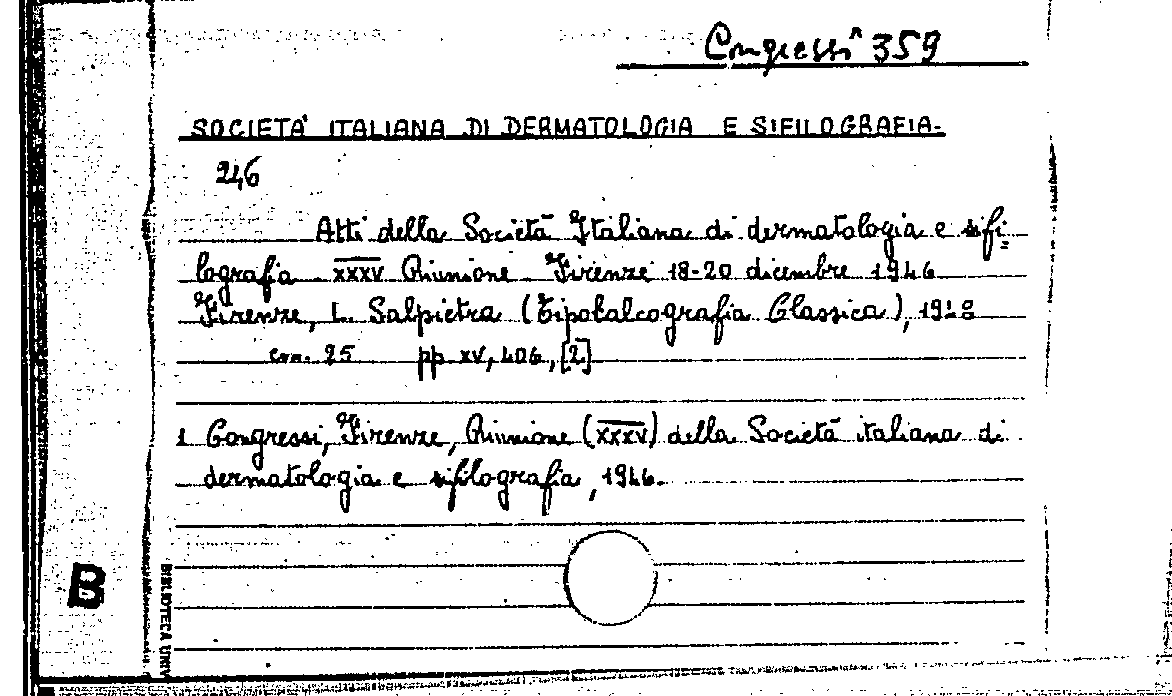 Congressi 359
SOCIETA' ITALIANA DI DERMATOLOGIA E SIFILOGRAFIA-
246
Atti della Società Italiana di dermatologia e sifi-
lografia XXXV Riunione Firenze 18-20 dicembre 1946
Firenze, L. Salpietra (Tipocalcografia Classica), 1948
cm. 25 pp. XV, 406, [2]
1 Congressi, Firenze, Riunione (XXXV) della Società italiana di
dermatologia e sifilografia, 1946.
B
BIBLIOTECA UNIV